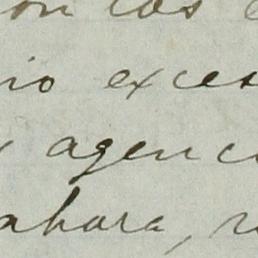 con los
io exces
y agenci
ahora,